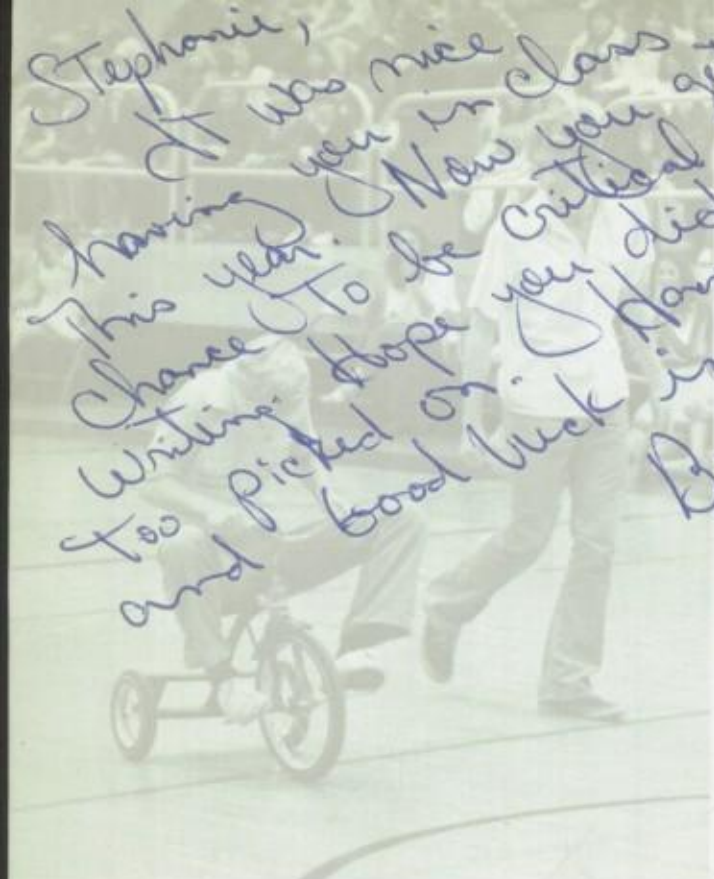 Stephanie,
It was nice
having you in class
This year. Now you ge
Chance To be critical
Writing. Hope you did
too picked on. Hav
and Good luck i
B